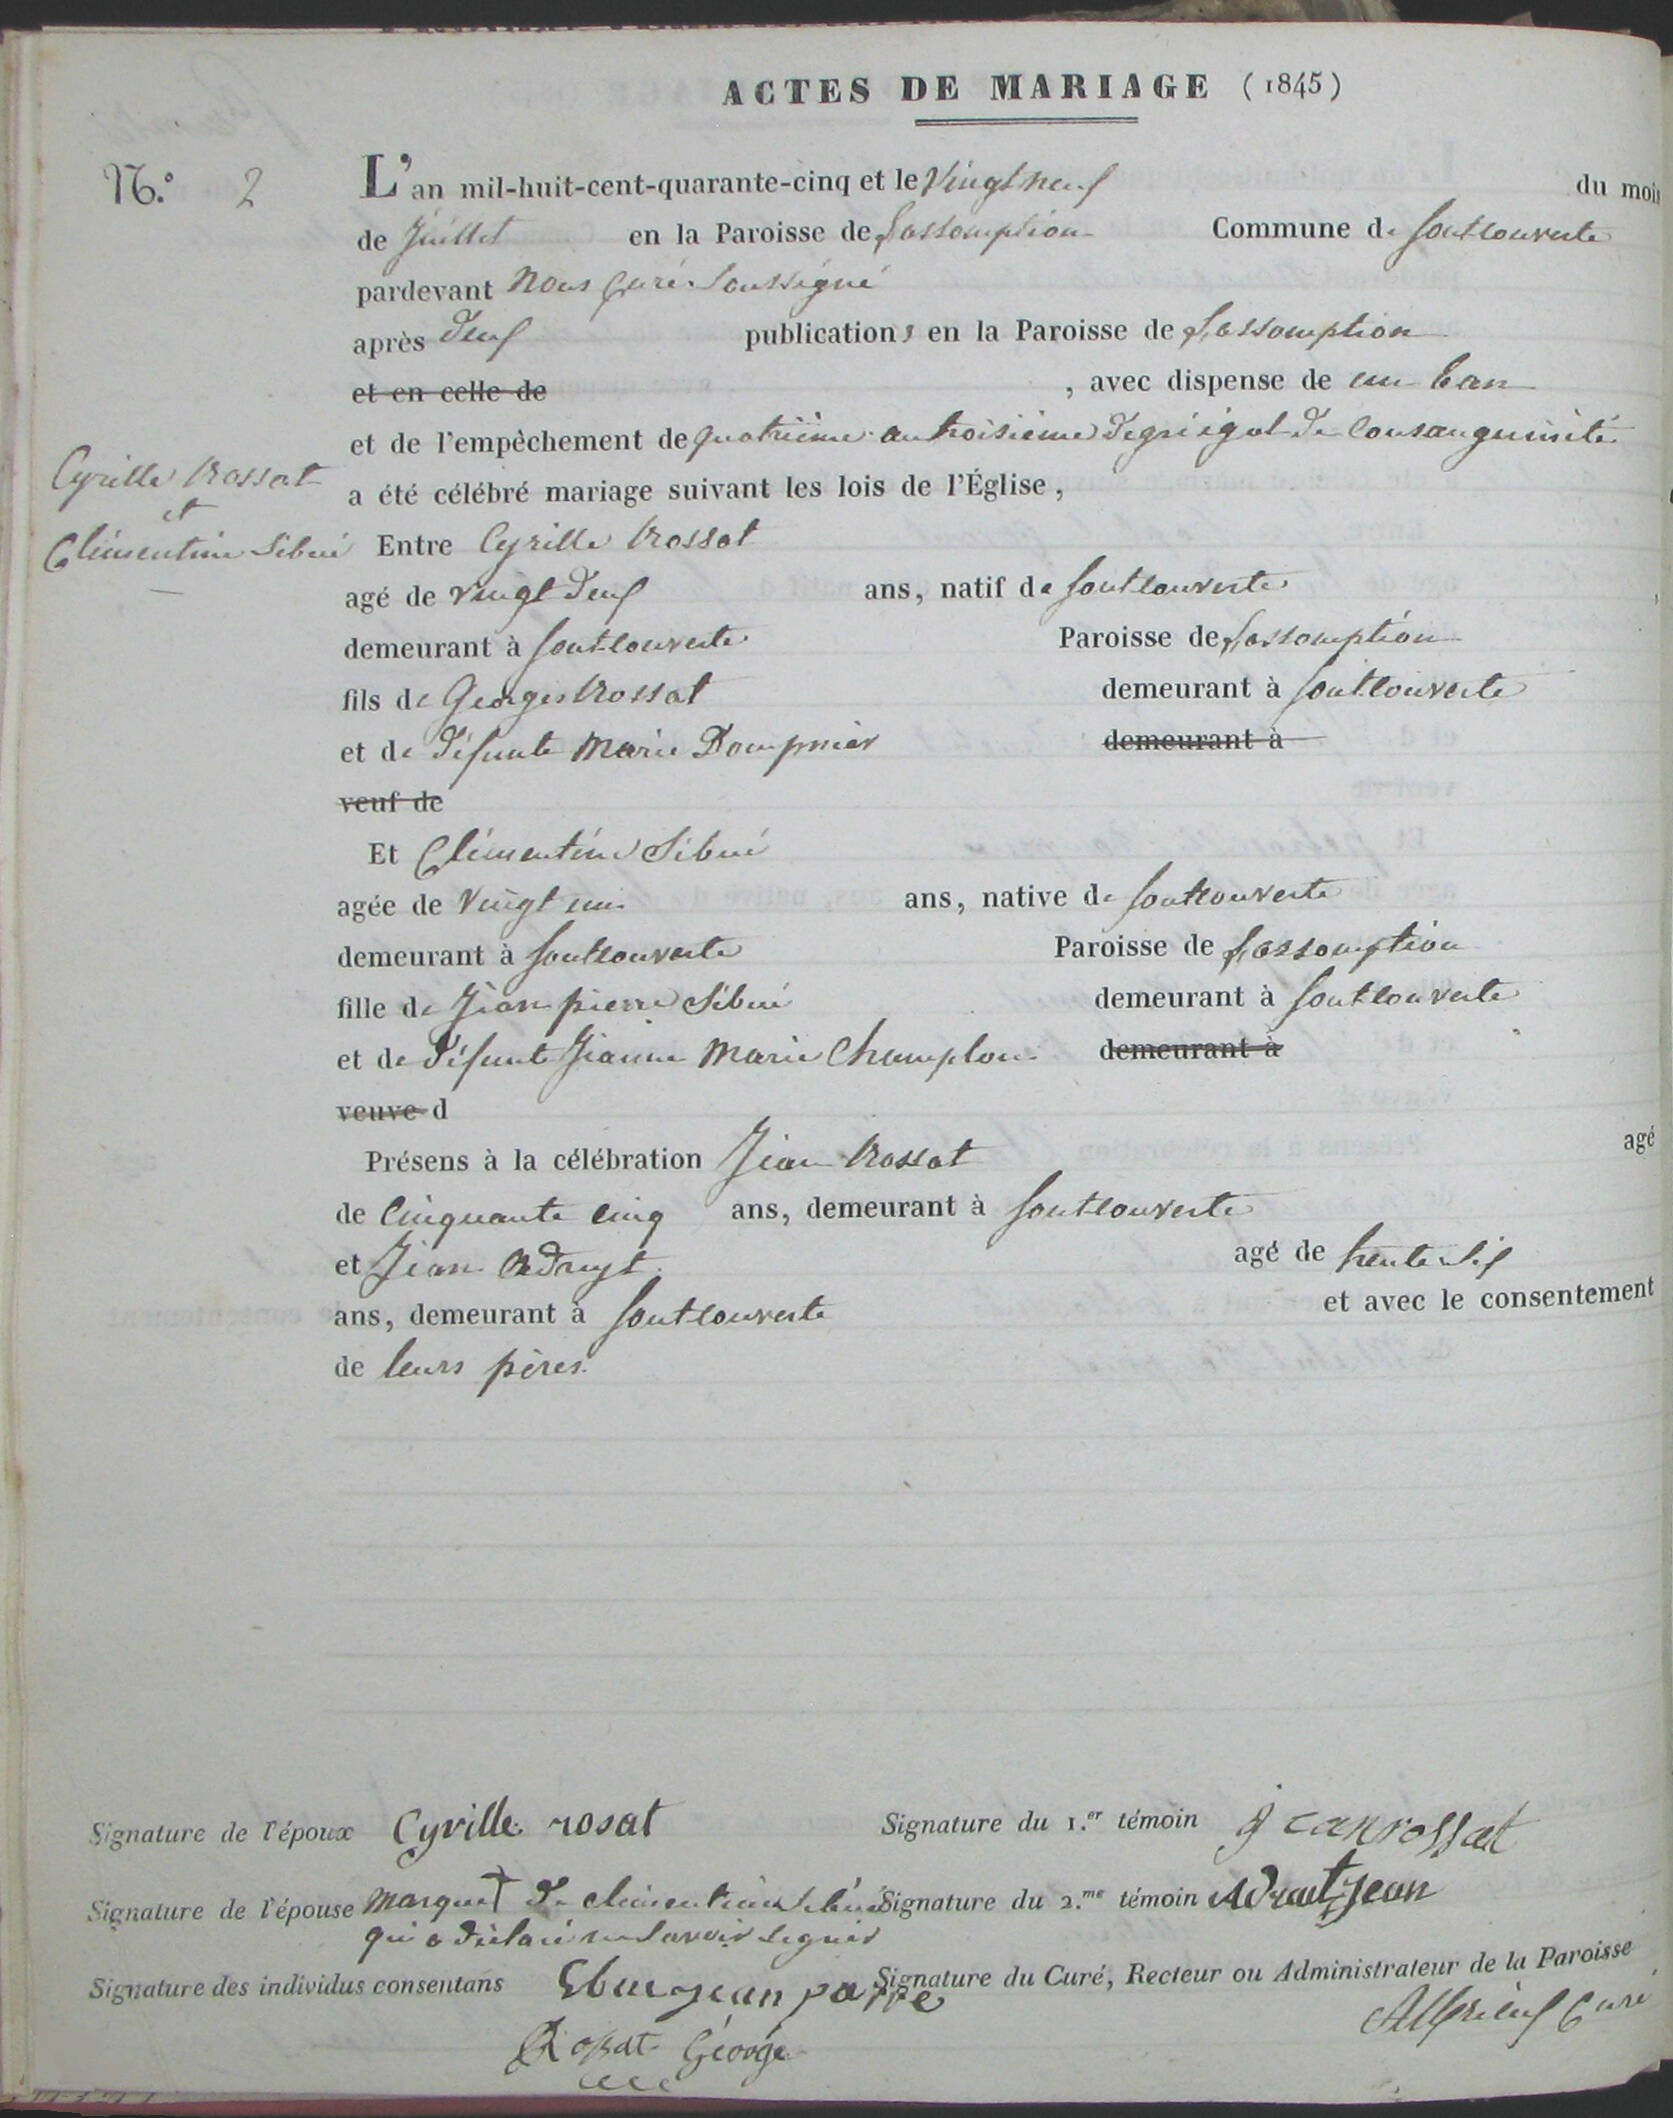 ACTES DE MARIAGE (1845)
N.° 2
L'an mil-huit-cent-quarante-cinq et le vingt neuf du mois
de Juillet en la Paroisse de L'assomption Commune de Sontcouverte
pardevant Nous Curé Soussigné
après deux publications en la Paroisse de L'assomption
et en celle de , avec dispense de un ban
et de l'empêchement de quatrième au troisième degré égal de Consanguinité
a été célébré mariage suivant les lois de l'Église,
Cyrille Rossat
et
Clémentine Sibué
Entre Cyrille Rossat
agé de vingt deux ans, natif de fontcouverte
demeurant à fontcouverte Paroisse de L'assomption
fils de Georges Rossat demeurant à fontcouverte
et de défunte Marie Dompnier demeurant à
veuf de
Et Clémentine Sibué
agée de vingt un ans, native de fontcouverte
demeurant à fontcouverte Paroisse de L'assomption
fille de Jean pierre Sibué demeurant à fontcouverte
et de défunte Jeanne Marie Champlon demeurant à
veuve d
Présens à la célébration Jean Rossat agé
de Cinquante cinq ans, demeurant à fontcouverte
et Jean Adruyt agé de trente six
ans, demeurant à fontcouverte et avec le consentement
de leurs pères.
Signature de l'époux Cyrille rosat Signature du 1.er témoin jean rossat
Signature de l'épouse Marque + de clémentine Sibué Signature du 2.me témoin Adruit Jean
qui a déclaré ne savoir signer
Signature des individus consentans Sbue jean pierre Signature du Curé, Recteur ou Administrateur de la Paroisse
Rossat George Curé